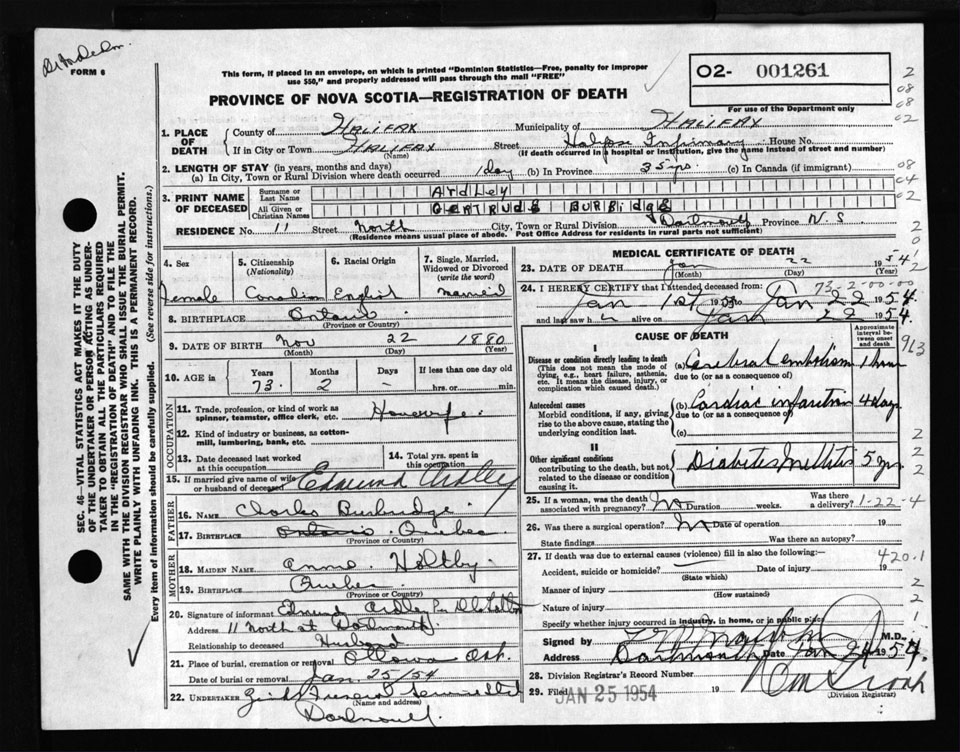 FORM 6
This form, if placed in an envelope, on which is printed "Dominion Statistics—Free, penalty for improper
use $50," and properly addressed will pass through the mail "FREE"
PROVINCE OF NOVA SCOTIA—REGISTRATION OF DEATH
O2- 001261
For use of the Department only
SEC. 46—VITAL STATISTICS ACT MAKES IT THE DUTY
OF THE UNDERTAKER OR PERSON ACTING AS UNDER-
TAKER TO OBTAIN ALL THE PARTICULARS REQUIRED
IN THE "REGISTRATION OF DEATH" AND TO FILE THE
SAME WITH THE DIVISION REGISTRAR WHO SHALL ISSUE THE BURIAL PERMIT.
WRITE PLAINLY WITH UNFADING INK. THIS IS A PERMANENT RECORD.
Every item of information should be carefully supplied. (See reverse side for instructions.)
1. PLACE OF DEATH County of Halifax Municipality of Halifax
If in City or Town Halifax Street Halifax Infirmary House No.
(Name) (If death occurred in a hospital or institution, give the name instead of street and number)
2. LENGTH OF STAY (in years, months and days)
(a) In City, Town or Rural Division where death occurred 1 day (b) In Province 35 yrs (c) In Canada (if immigrant)
3. PRINT NAME OF DECEASED Surname or Last Name Ardley
All Given or Christian Names GERTRUDE BURBIDGE
RESIDENCE No. 11 Street North City, Town or Rural Division Dartmouth Province N.S.
(Residence means usual place of abode. Post Office Address for residents in rural parts not sufficient)
4. Sex Female
5. Citizenship (Nationality) Canadian
6. Racial Origin English
7. Single, Married, Widowed or Divorced (write the word) Married
8. BIRTHPLACE Ontario
(Province or Country)
9. DATE OF BIRTH Nov 22 1880
(Month) (Day) (Year)
10. AGE in Years 73 Months 2 Days - If less than one day
hrs. or min.
OCCUPATION
11. Trade, profession, or kind of work as spinner, teamster, office clerk, etc. Housewife.
12. Kind of industry or business, as cotton-mill, lumbering, bank, etc.
13. Date deceased last worked at this occupation
14. Total yrs. spent in this occupation
15. If married give name of wife or husband of deceased Edmund Ardley
FATHER
16. NAME Charles Burbidge
17. BIRTHPLACE Ontario Quebec
(Province or Country)
MOTHER
18. MAIDEN NAME Anne Holtby.
19. BIRTHPLACE Quebec
(Province or Country)
20. Signature of informant Edmund Ardley
Address 11 North st Dartmouth.
Relationship to deceased Husband
21. Place of burial, cremation or removal Ottawa Ont.
Date of burial or removal Jan. 25/54
22. UNDERTAKER Funeral
(Name and address)
Dartmouth.
MEDICAL CERTIFICATE OF DEATH
23. DATE OF DEATH Jan 22 1954
(Month) (Day) (Year)
73-2-00-00
24. I HEREBY CERTIFY that I attended deceased from:
Jan 1st 1953 to Jan 22 1954.
and last saw h alive on Jan 22 1954.
CAUSE OF DEATH
Approximate interval between onset and death
I
Disease or condition directly leading to death
(This does not mean the mode of dying, e.g., heart failure, asthenia, etc. It means the disease, injury, or complication which caused death.)
(a) Cerebral embolism 1 hour
due to (or as a consequence of)
Antecedent causes
Morbid conditions, if any, giving rise to the above cause, stating the underlying condition last.
(b) Cardiac infarction 4 days
due to (or as a consequence of)
(c)
II
Other significant conditions
contributing to the death, but not related to the disease or condition causing it.
Diabetes Mellitus 5 yrs
25. If a woman, was the death associated with pregnancy? No Duration weeks. Was there a delivery? 1-22-4
26. Was there a surgical operation? No Date of operation 19
State findings Was there an autopsy?
27. If death was due to external causes (violence) fill in also the following:—
420.1
Accident, suicide or homicide? Date of injury 19
(State which)
Manner of injury
(How sustained)
Nature of injury
Specify whether injury occurred in industry, in home, or in public place
Signed by M.D.
Address Dartmouth Date Jan 24 1954.
28. Division Registrar's Record Number
29. Filed JAN 25 1954 19
(Division Registrar)